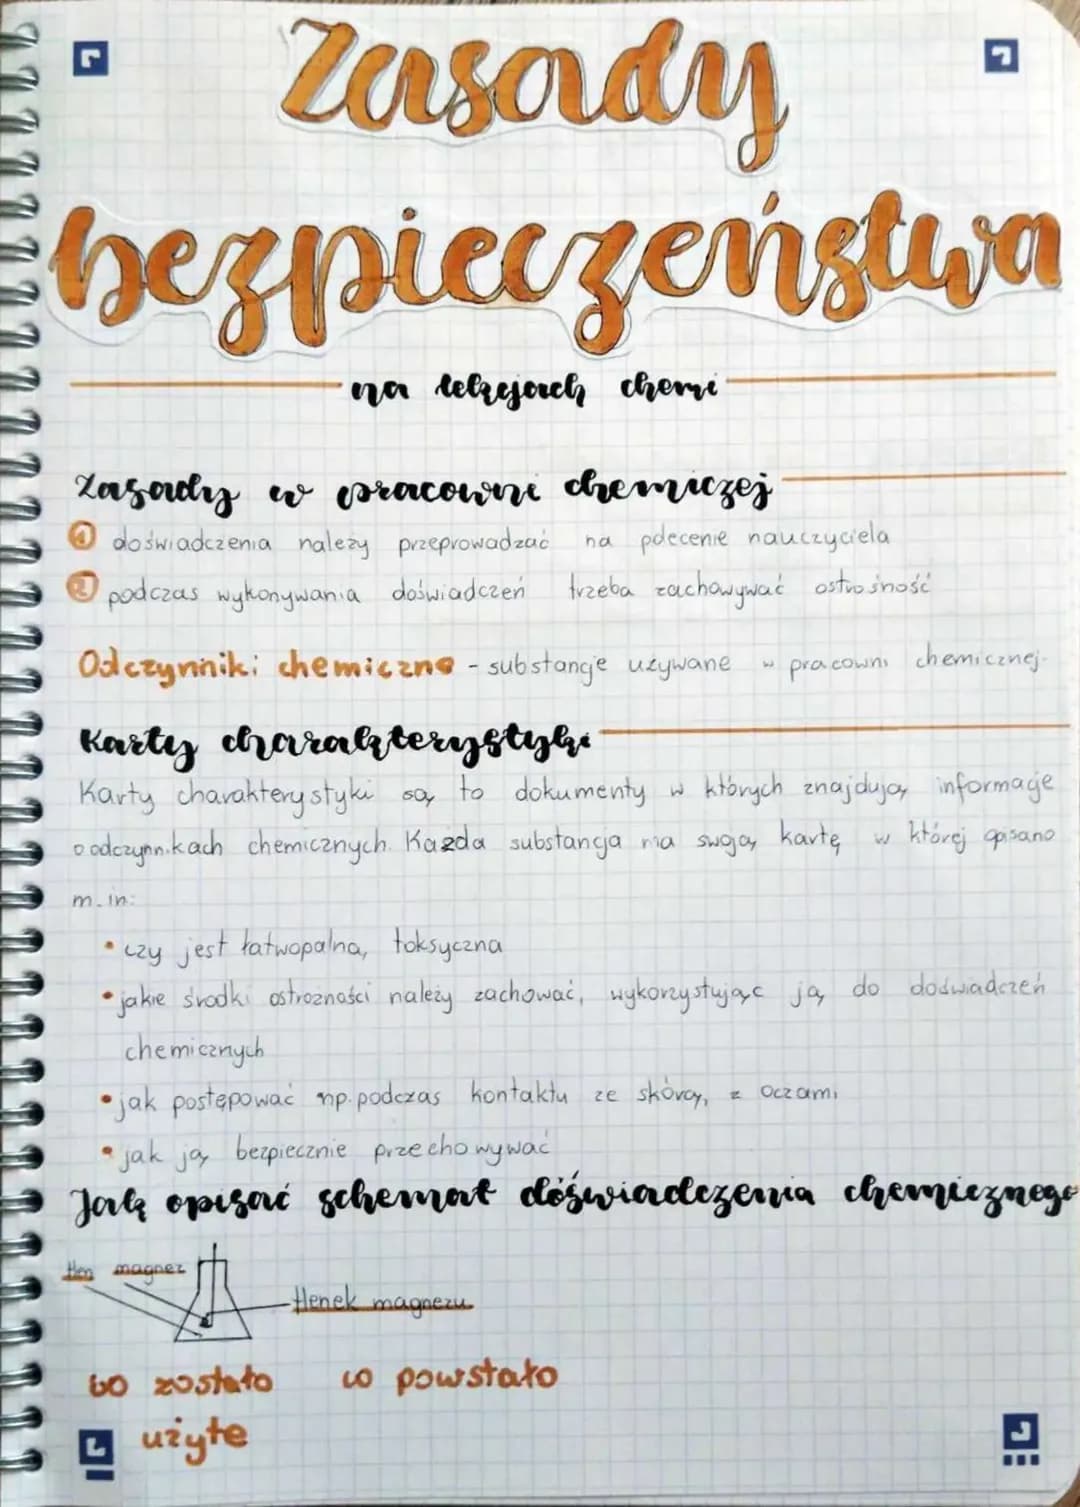 Zasady
bezpieczeństwa
na lekcjach chemi
Zasady w pracowni chemiczej
1 doświadczenia należy przeprowadzać na polecenie nauczyciela
2 podczas wykonywania doświadczeń trzeba zachowywać ostrośność
Odczynniki chemiczne - substancje używane w pracowni chemicznej.
Karty charakterystyki
Karty charakterystyki są to dokumenty w których znajdują informacje
o odczynnikach chemicznych. Każda substancja ma swoją kartę w której opisano
m.in:
• czy jest łatwopalna, toksyczna
• jakie środki ostrożności należy zachować, wykorzystując ją do doświadczeń
chemicznych
• jak postępować np. podczas kontaktu ze skórą, z oczami
• jak ją bezpiecznie przechowywać
Jak opisać schemat doświadczenia chemicznego
tlen magnez
tlenek magnezu
co zostało co powstało
użyte